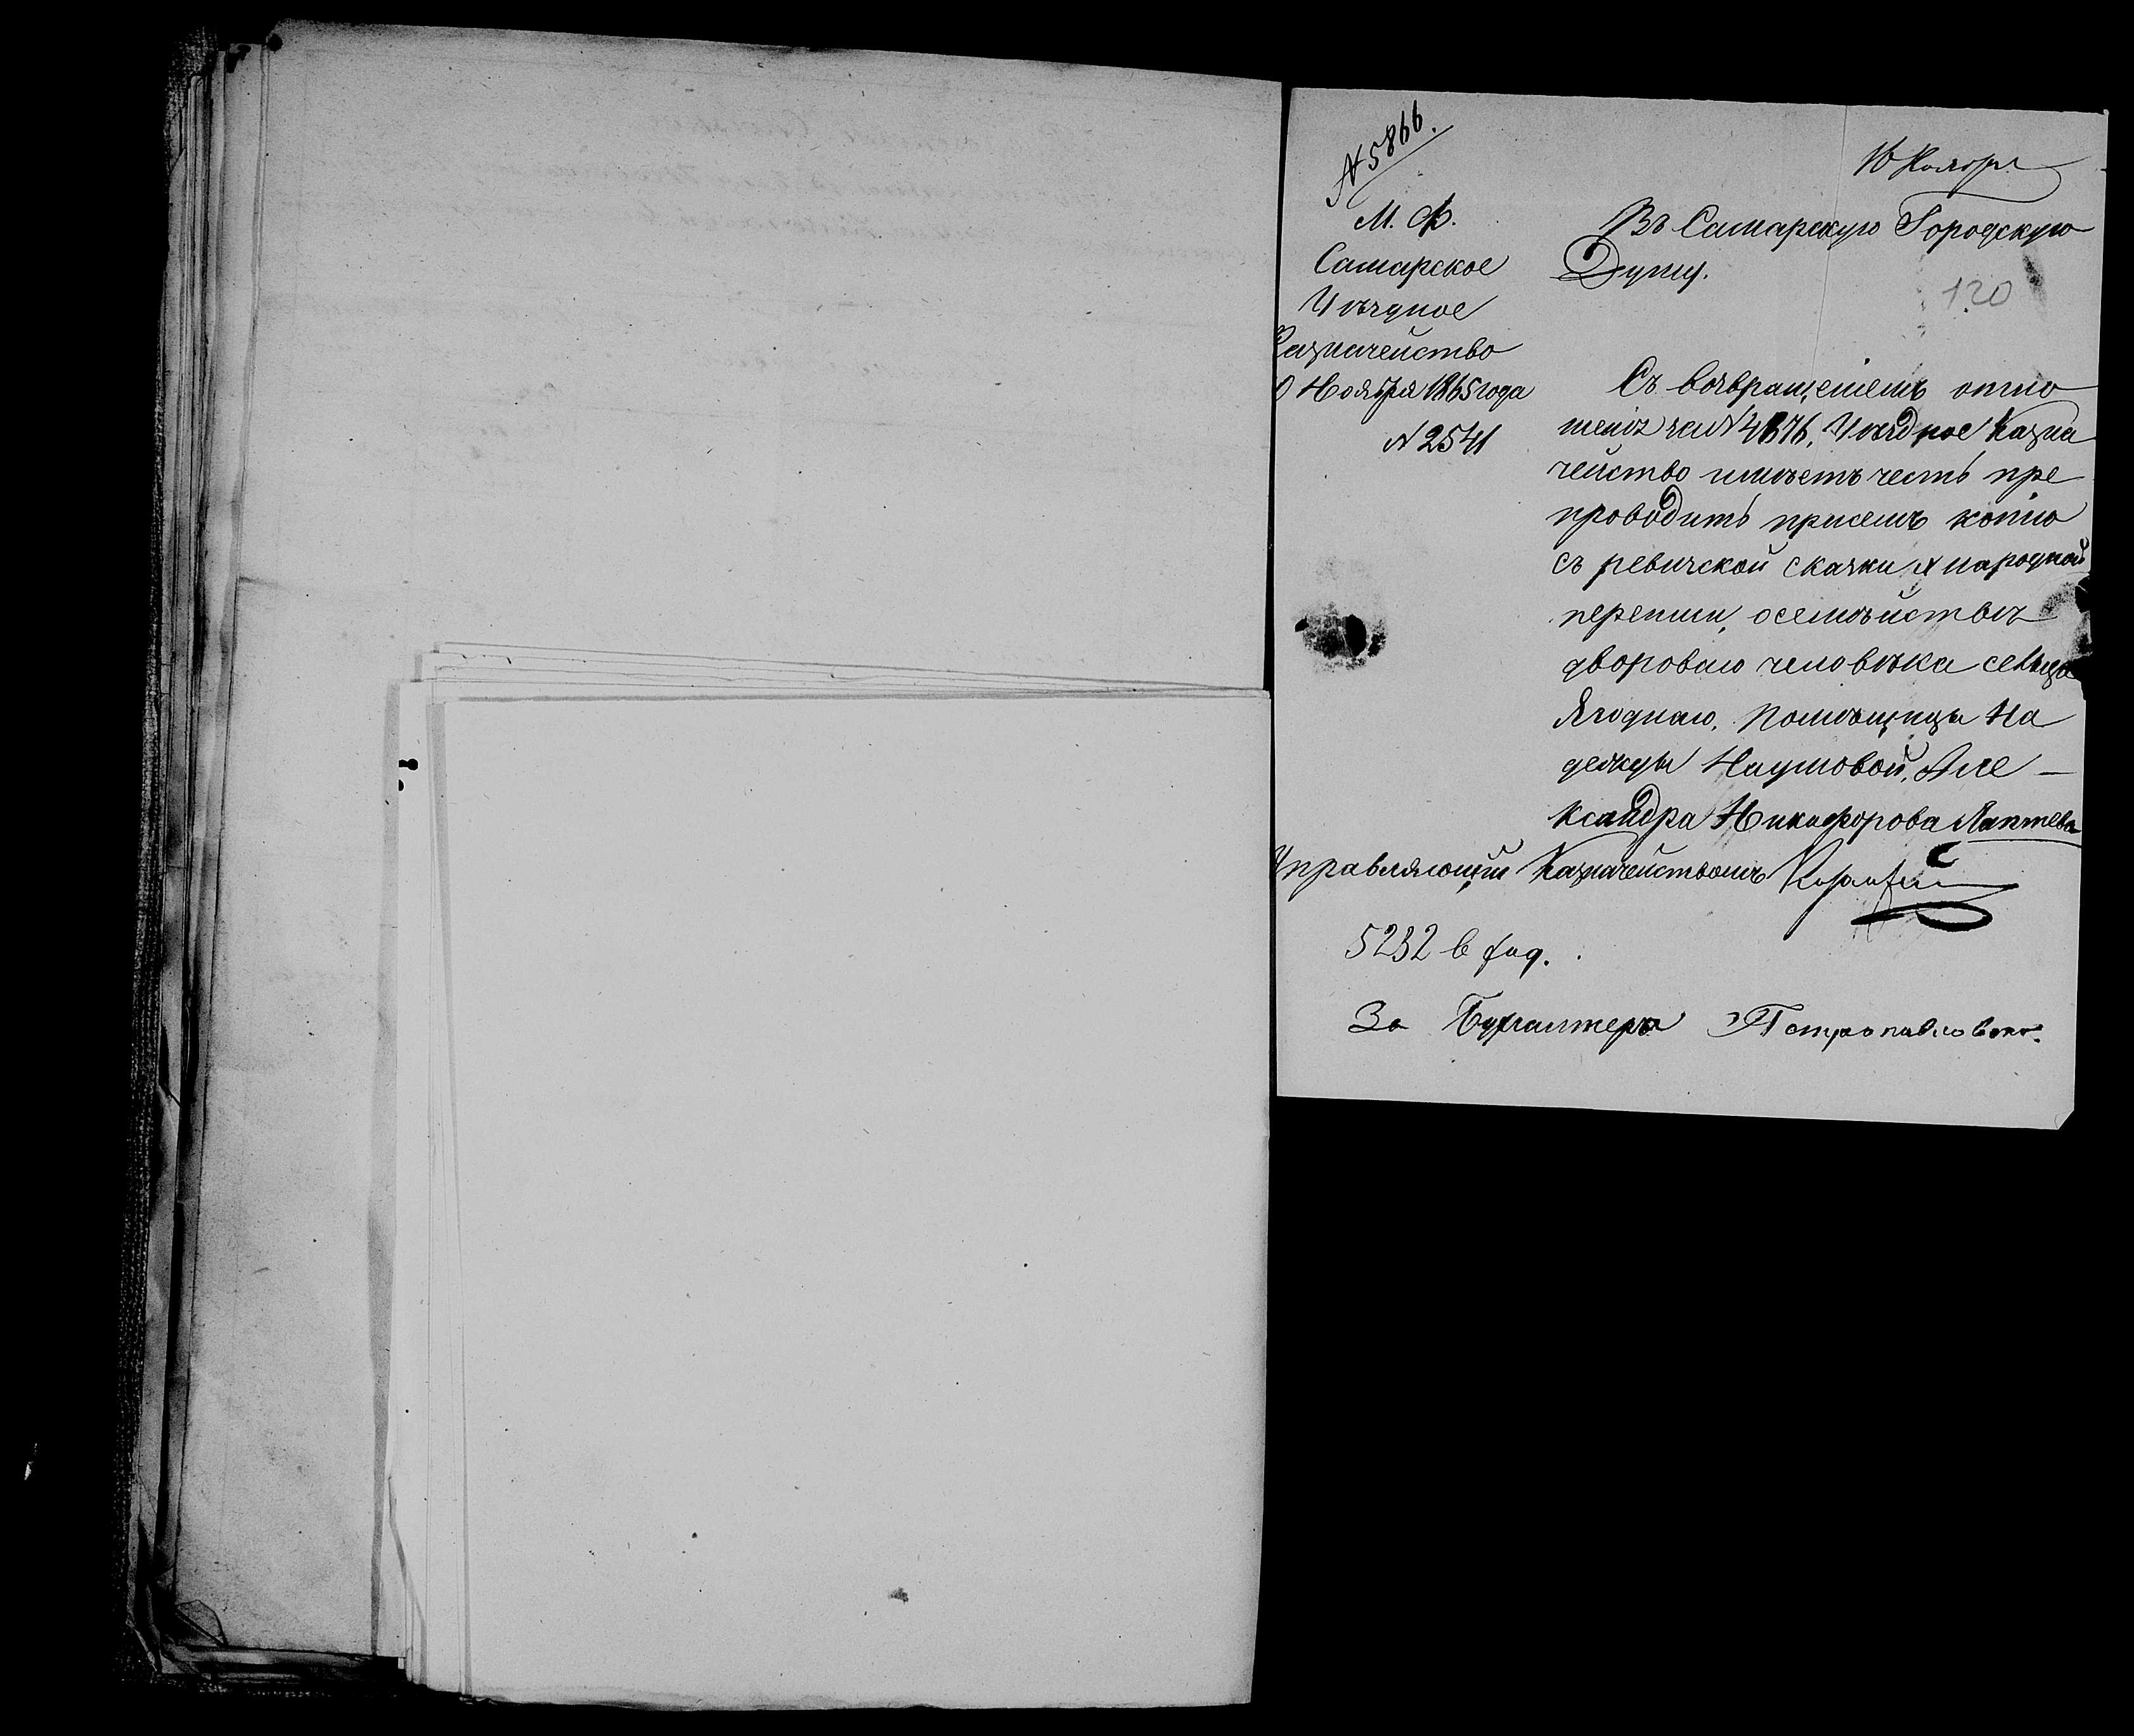 № 5866.
М. Ф.
Самарское
Уѣздное
Казначейство
10 Ноября 1865 года
№ 2541
16 Ноябр.
Въ Самарскую Городскую
Думу.
120
Съ возвращеніемъ отно
шенія за № 4876, Уѣздное Казна
чейство имѣетъ честь пре
проводить присемъ копію
съ ревизской сказки X народной
переписи, о семѣйствѣ
двороваго человѣка сельца
Ягоднаго, помѣщицы На
дежды Наумовой, Але –
ксандра Никифорова Лаптева
Управляющій Казначействомъ
5232 в
За Бухгалтера Петропавловск.